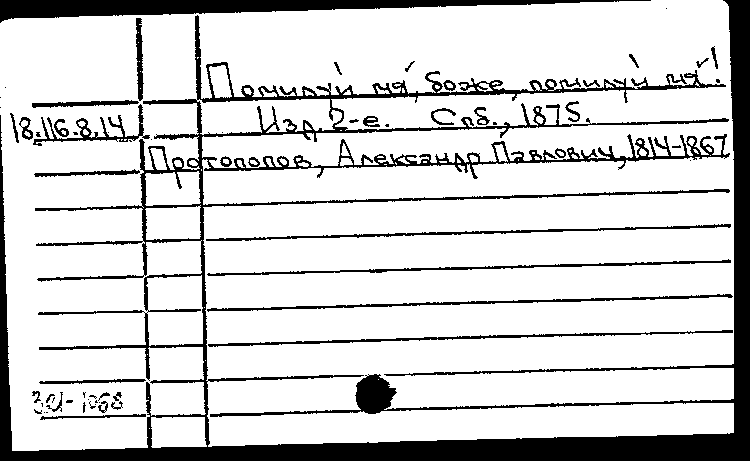 Помилуй мя, боже, помилуй мя!
18.116.8.14 Изд. 2-е. Спб., 1875.
Протопопов, Александр Павлович, 1814-1867